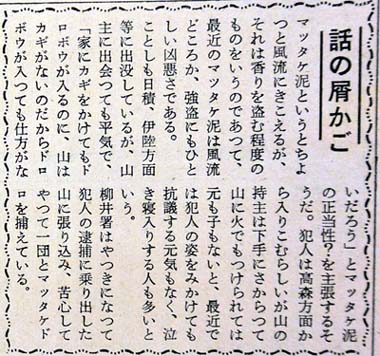 話の屑かご
マツタケ泥というとちよ
つと風流にきこえるが、
それは香りを盗む程度の
ものをいうのであつて、
最近のマツタケ泥は風流
どころか、強盗にもひと
しい凶悪さである。
ことしも日積、伊陸方面
等に出没しているが、山
主に出会つても平気で、
「家にカギをかけてもド
ロボウが入るのに、山は
カギがないのだからドロ
ボウが入つても仕方がな
いだろう」とマツタケ泥
の正当性?を主張するそ
うだ。犯人は高森方面か
ら入りこむらしいが山の
持主は下手にさからつて
山に火でもつけられては
元も子もないと、最近で
は犯人の姿をみかけても
抗議する元気もなく、泣
き寝入りする人も多いと
いう。
柳井署はやつきになつて
犯人の逮捕に乗り出した
山に張り込み、苦心して
やつて一団とマツタケド
ロを捕えている。